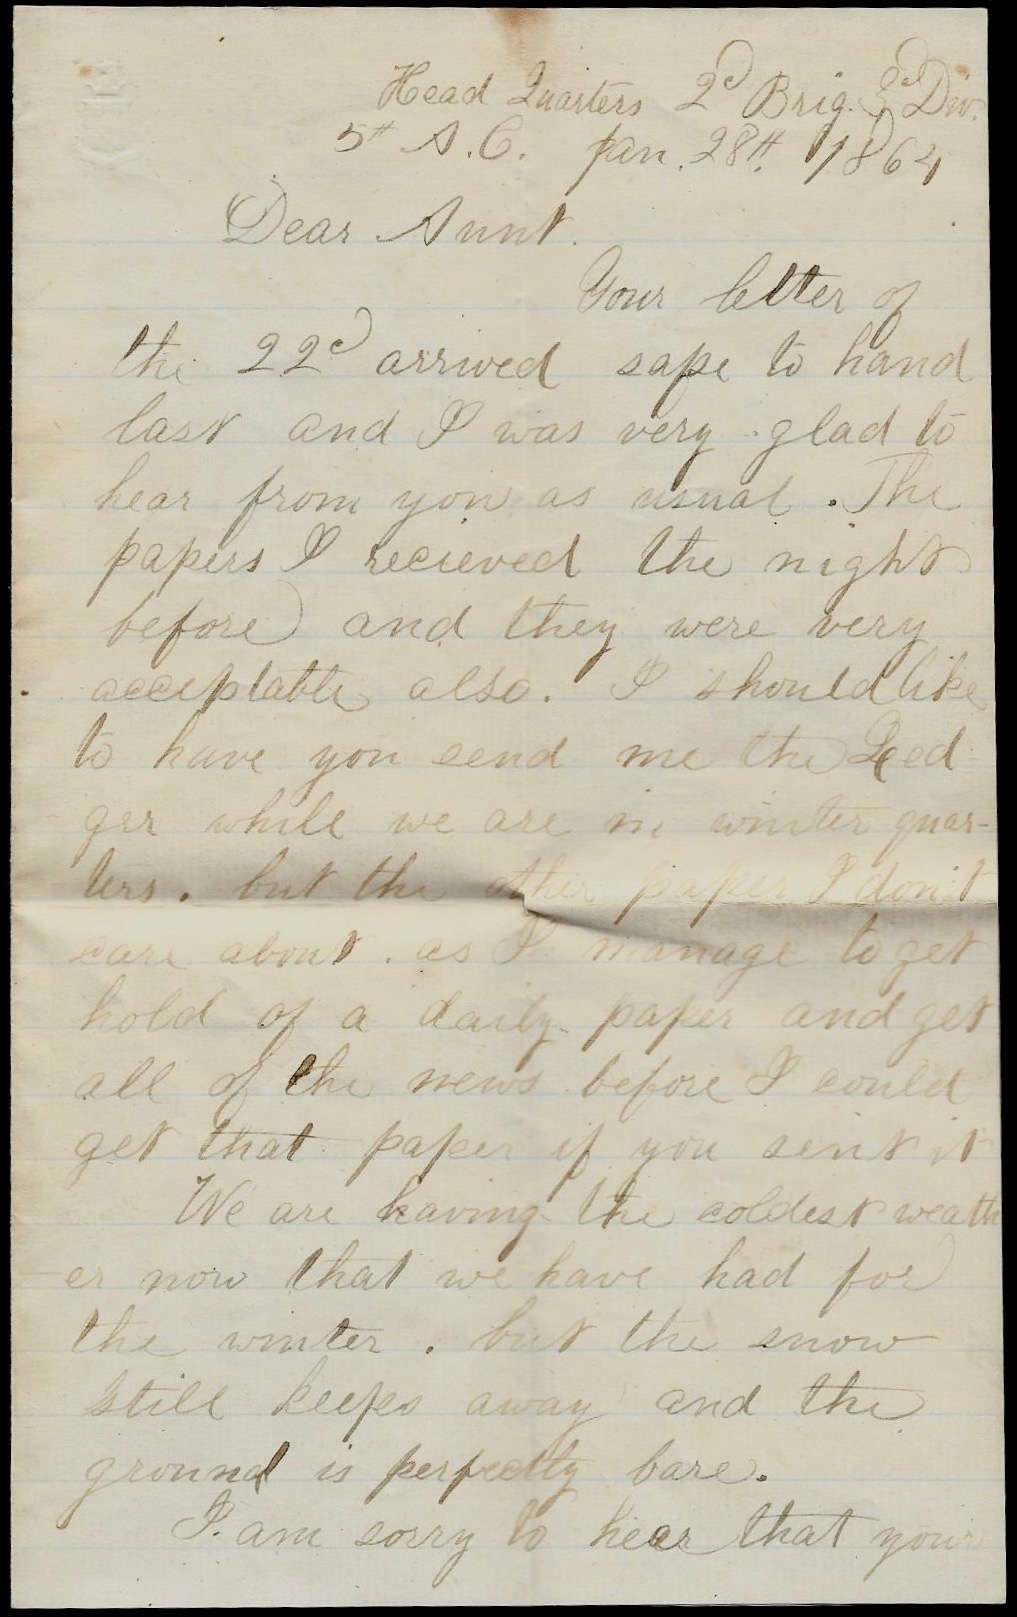 Head Quarters 2d Brig. 3d Div.
5th A.C. Jan. 28th. 1864
Dear Aunt.
Your letter of
the 22d arrived safe to hand
last and I was very glad to
hear from you as usual. The
papers I recieved the night
before and they were very
acceptable also. I should like
to have you send me the Led-
ger while we are in winter quar-
ters. but the other paper I don't
care about. as I manage to get
hold of a daily paper and get
all of the news before I could
get that paper if you sent it
We are having the coldest weath
er now that we have had for
the winter. but the snow
still keeps away and the
ground is perfectly bare.
I am sorry to hear that your